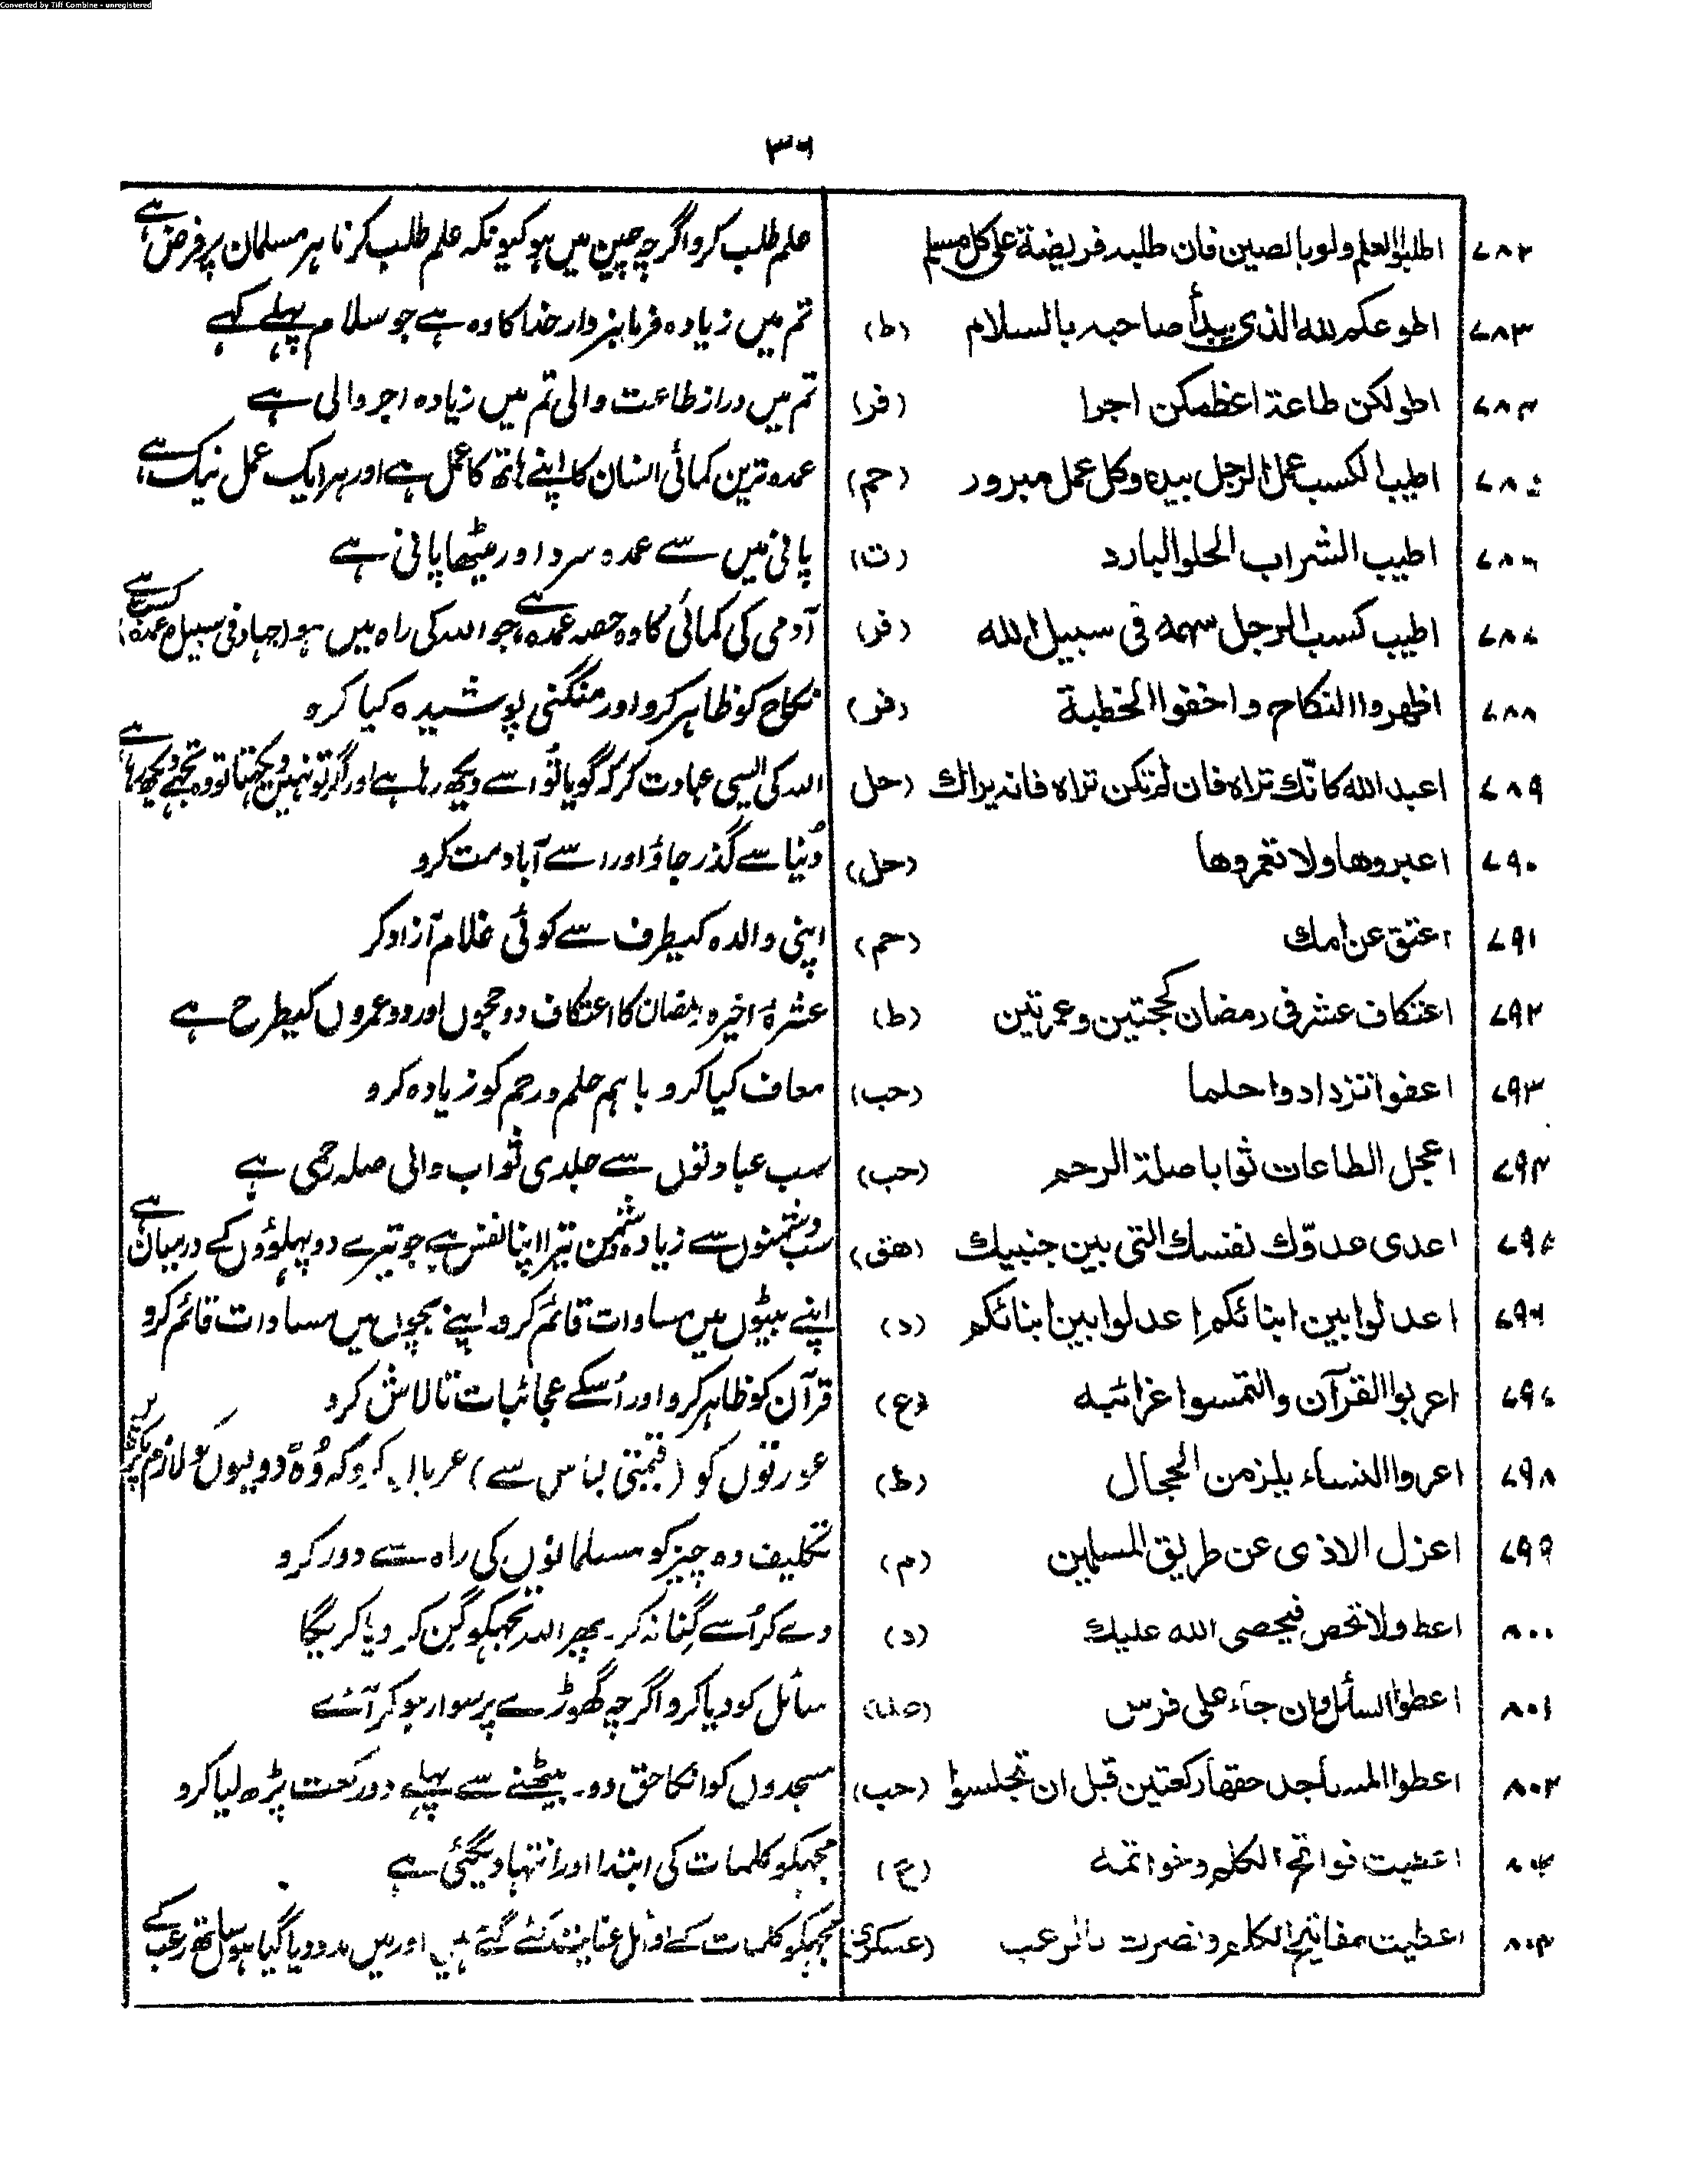 Converted by Tiff Combine - unregistered
۳۶
۷۸۲ اطلبوا العلم ولو بالصين فان طلبه فريضة على كل مسلم علم طلب کرو اگرچہ چین میں ہو کیونکہ علم طلب کرنا ہر مسلمان پر فرض ہے
۷۸۳ اطوعكم لله الذى يبدأ صاحبه بالسلام (ط) تم میں زیادہ فرمانبردار خدا کا وہ ہے جو سلام پہلے کہے
۷۸۴ اطولكن طاعة اعظمكن اجرا (فر) تم میں دراز طاعت والی تم میں زیادہ اجر والی ہے
۷۸۵ اطيب الكسب عمل الرجل بيده وكل عمل مبرور (حم) عمدہ ترین کمائی انسان کا اپنے ہاتھ کا عمل ہے اور ہر ایک عمل نیک ہے
۷۸۶ اطيب الشراب الحلو البارد (ت) پانی میں سے عمدہ سرد اور میٹھا پانی ہے
۷۸۷ اطيب كسب الرجل سهمه فى سبيل الله (فر) آدمی کی کمائی کا وہ حصہ عمدہ ہے جو اللہ کی راہ میں ہو (جہاد فی سبیل عمدہ کسب ہے)
۷۸۸ اظهروا النكاح واخفوا الخطبة (فر) نکاح کو ظاہر کرو اور منگنی پوشیدہ کیا کرو
۷۸۹ اعبد الله كانّك تراه فان لم تكن تراه فانه يراك (حل) اللہ کی ایسی عبادت کر کہ گویا تُو اسے دیکھ رہا ہے اور اگر تو نہیں دیکھتا تو وہ تجھے دیکھ رہا ہے
۷۹۰ اعبروها ولا تعمروها (حل) دُنیا سے گذر جاؤ اور اسے آباد مت کرو
۷۹۱ اعتق عن امك (حم) اپنی والدہ کیطرف سے کوئی غلام آزاد کر
۷۹۲ اعتكاف عشر فى رمضان كحجتين وعمرتين (ط) عشرۂ اخیرہ رمضان کا اعتکاف دو حجوں اور دو عمروں کیطرح ہے
۷۹۳ اعفوا تزدادوا حلما (حب) معاف کیا کرو باہم حلم و رحم کو زیادہ کرو
۷۹۴ اعجل الطاعات ثوابا صلة الرحم (حب) سب عبادتوں سے جلدی ثواب والی صلہ رحمی ہے
۷۹۵ اعدى عدوّك نفسك التى بين جنبيك (هق) سب دشمنوں سے زیادہ دشمن تیرا اپنا نفس ہے جو تیرے دو پہلوؤں کے درمیان ہے
۷۹۶ اعدلوا بين ابنائكم اعدلوا بين ابنائكم (د) اپنے بیٹوں میں مساوات قائم کرو۔ اپنے بچوں میں مساوات قائم کرو
۷۹۷ اعربوا القرآن والتمسوا غرائبه (ع) قرآن کو ظاہر کرو اور اُسکے عجائبات تالاش کرو
۷۹۸ اعروا النساء يلزمن الحجال (ط) عورتوں کو (قیمتی لباس سے) عریاں کرو کہ وُہ لازم
۷۹۹ اعزل الاذى عن طريق المسلمين (م) تکلیف دہ چیز کو مسلمانوں کی راہ سے دور کرو
۸۰۰ اعط ولا تحص فيحصى الله عليك (د) دے کر اُسے گننا نہ کر۔ پھر اللہ تجھکو گن کر دیا کریگا
۸۰۱ اعطوا السائل وان جاء على فرس سائل کو دیا کرو اگرچہ گھوڑے پر سوار ہو کر آئے
۸۰۲ اعطوا المساجد حقها ركعتين قبل ان تجلسوا (حب) مسجدوں کو انکا حق دو۔ بیٹھنے سے پہلے دو رکعت پڑھ لیا کرو
۸۰۳ اعطيت فواتح الكلم وخواتمه (ع) مجھکو کلمات کی ابتدا اور انتہا دیگئی ہے
۸۰۴ اعطيت مفاتيح الكلم ونصرت بالرعب (عسکری) مجھکو کلمات کے اوائل عنایت کئے گئے ہیں اور میں مدد دیا گیا ہوں ساتھ رعب کے